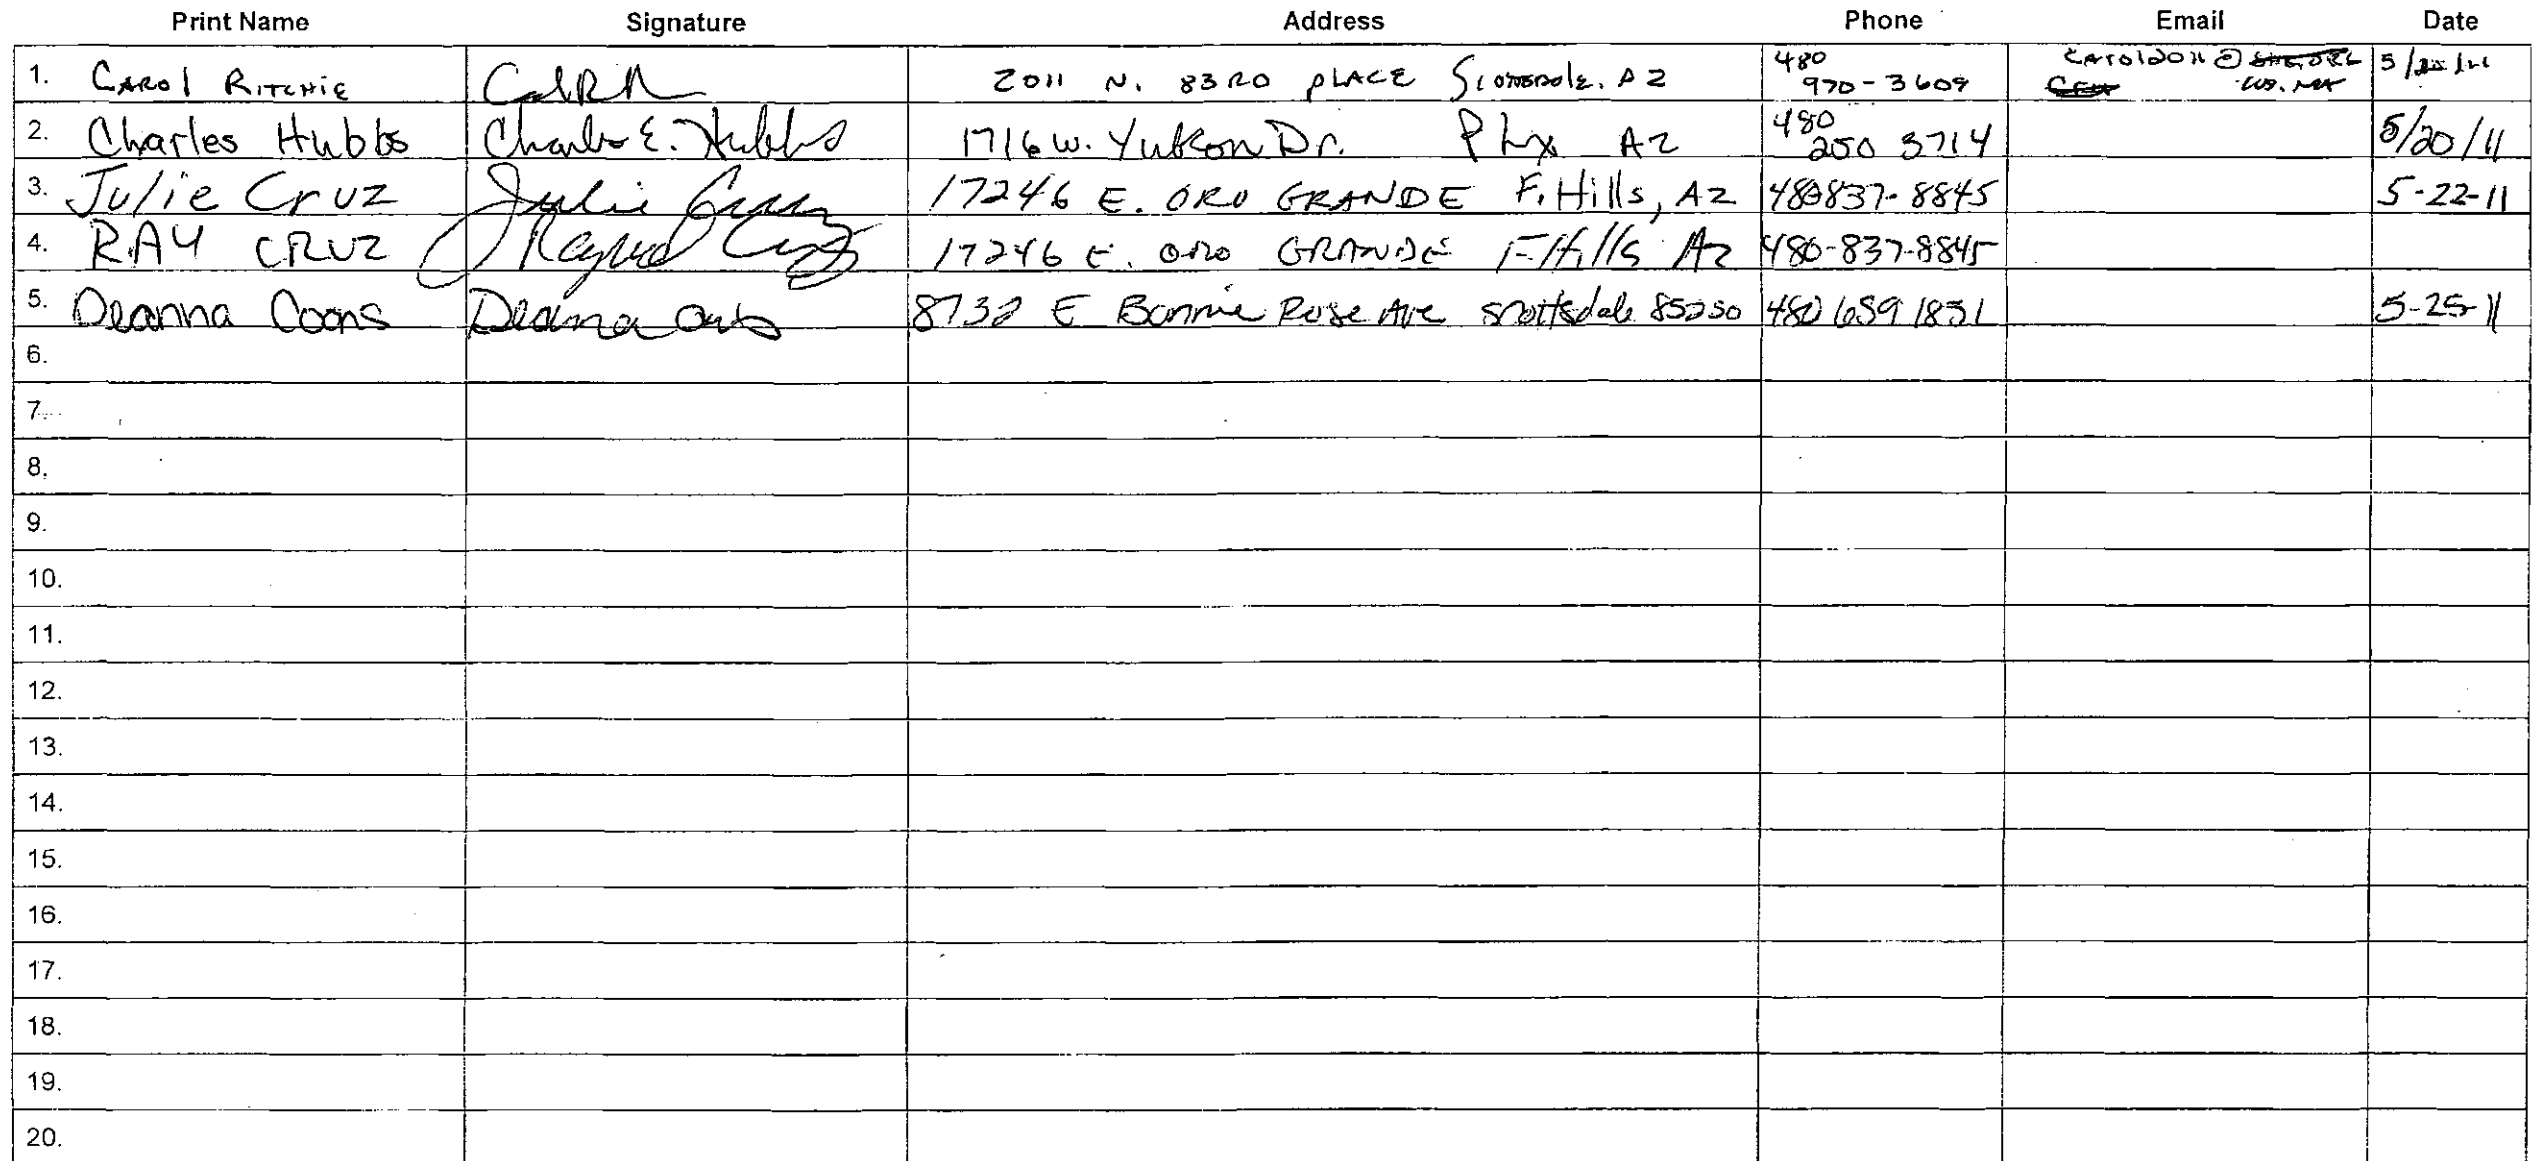 Print Name Signature Address Phone Email Date
1. CAROL RITCHIE 2011 N. 83RD PLACE Scottsdale. AZ 480 970-3609 5/
2. Charles Hubbs Charles E. Hubbs 1716 W. Yukon Dr. Phx AZ 480 250 3714 5/20/11
3. Julie Cruz Julie Cruz 17246 E. ORO GRANDE F. Hills, AZ 480837-8845 5-22-11
4. RAY CRUZ 17246 E. ORO GRANDE F Hills AZ 480-837-8845
5. Deanna Coons Deanna 8732 E Bonnie Rose Ave Scottsdale 85250 480 659 1851 5-25-11
6.
7.
8.
9.
10.
11.
12.
13.
14.
15.
16.
17.
18.
19.
20.